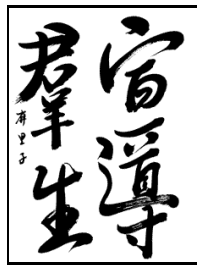 宣導
羣生
麻里子